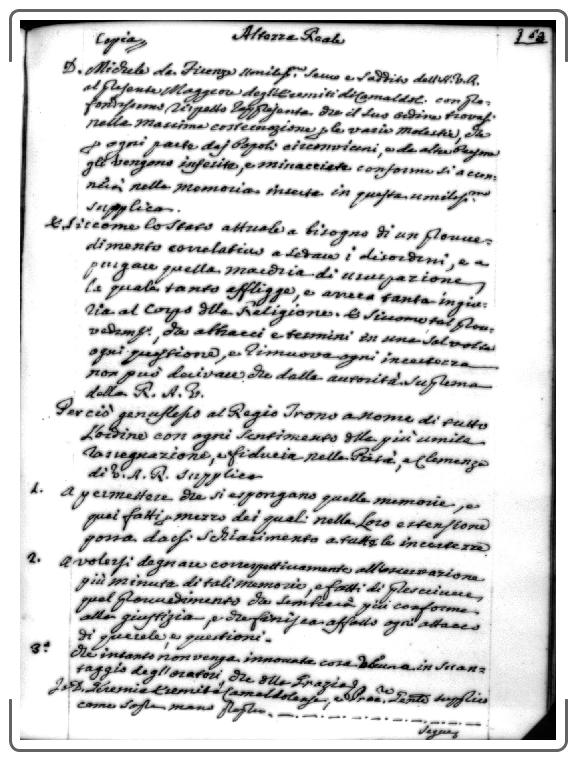 Copia Altezza Reale 163
D. Michele da Firenze umiliss.mo Servo e Suddito dell'A.V.R.
al presente Maggiore degl'Eremiti di Camaldol: con pro-
fondissimo rispetto rappresenta che il suo ordine trovasi
nella massima costernazione p le varie molestie, che
p ogni parte da popoli circonvicini, e da altre persone
gli vengono inferite, e minacciate conforme si accen-
nerà nella memoria inserta in questa umiliss.ma
supplica.
E siccome lo stato attuale a bisogno di un provve-
dimento correlativo a sedare i disordini, e a
purgare quella materia di usurpazione,
la quale tanto affligge, e arreca tanta ingiu-
ria al Corpo della Religione. E siccome tal prov-
vedim.to, che abbracci e termini in una sol volta
ogni questione, e rimuova ogni incertezza
non può derivare che dalla autorità suprema
della R. A. V.
Perciò genuflesso al Regio Trono a nome di tutto
l'ordine con ogni sentimento della più umile
rassegnazione, e fiducia nella Pietà, e Clemenza
di V. A. R. supplica
1. A permettere che si espongano quelle memorie, e
quei fatti p mezzo dei quali nella loro estensione
possa darsi schiarimento a tutte le incertezze
2. A volersi degnare correspettivamente all'osservazione
più minuta di tali memorie, e fatti di prescrivere,
quel provvedimento che sembrerà più conforme
alla giustizia, e che finisca affatto ogni attacco
di querele, e questioni.
3.° Che intanto non venga innovata cosa alcuna in svan-
taggio degl'oratori, che della Grazia
Io D. Geremia Eremita Camaldolense, e Proc.re supplico
come sopra mano propria
Segue